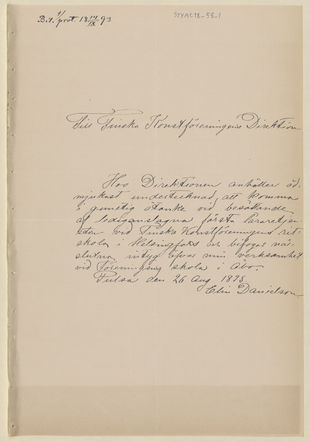 B.1. 1/prot 18 14/IX 93
Till Finska Konstföreningens Direktion
Hos Direktionen anhåller öd-
mjukast undertecknad, att komma
i gunstig åtanke vid besättande
af lediganslagna första läraretjen-
sten vid Finska Konstföreningens rit-
skola i Helsingfors och bifogar när-
slutna intyg öfver min verksamhet
vid Föreningens skola i Åbo.
den 26 Aug 1893
Elin Danielson